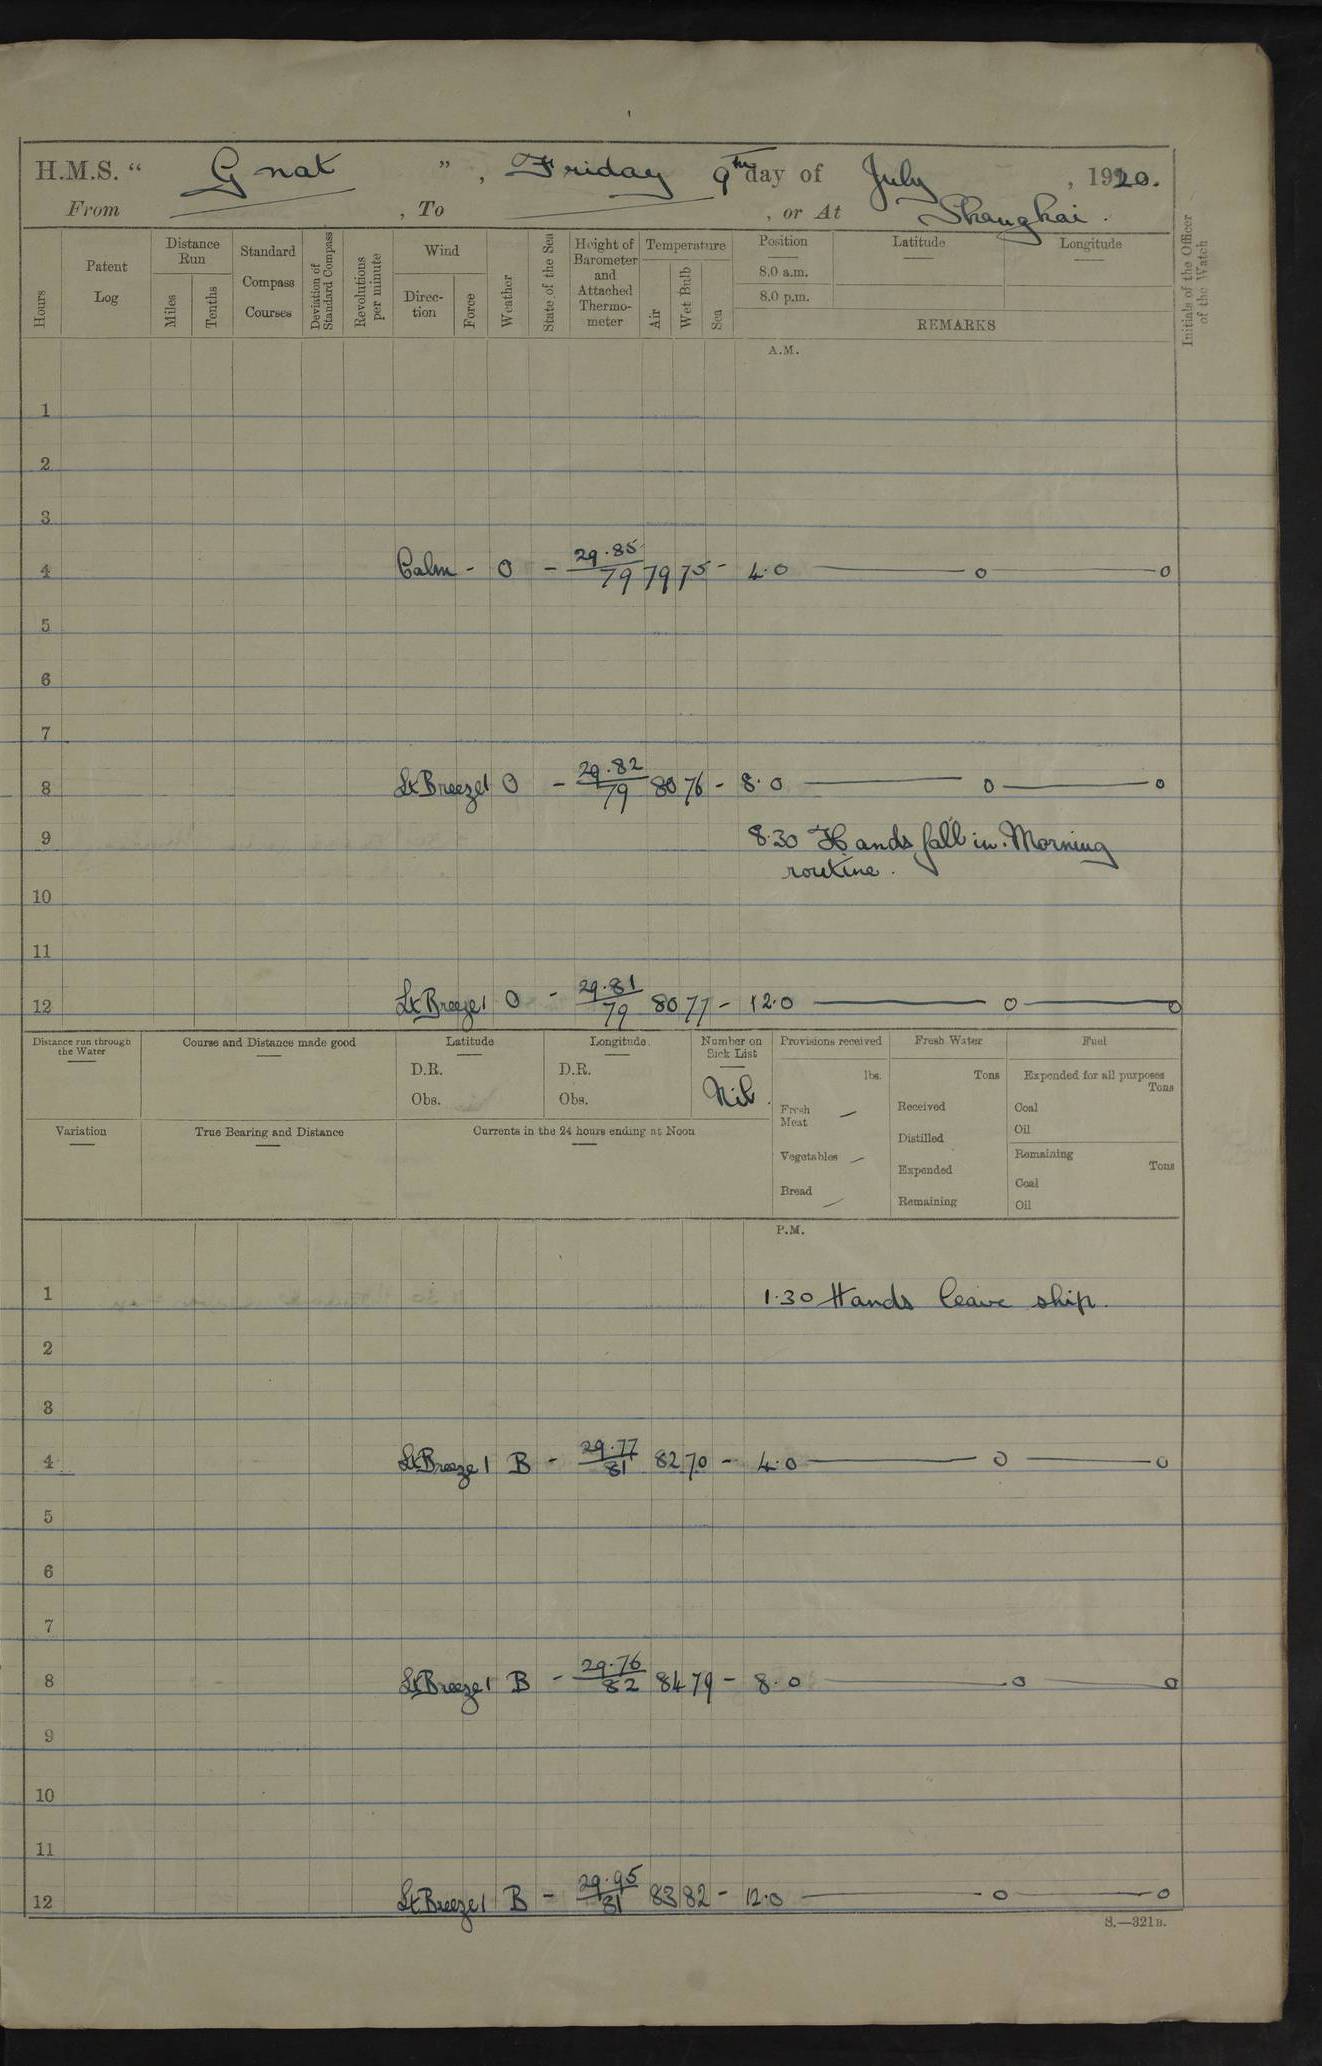 H.M.S. “ Gnat ”, Friday 9th day of July, 1920.
From , To , or At Shanghai.
Hours
Patent Log
Distance Run
Miles
Tenths
Standard Compass Courses
Deviation of Standard Compass
Revolutions per minute
Wind
Direc-tion
Force
Weather
State of the Sea
Height of Barometer and Attached Thermo-meter
Temperature
Air
Wet Bulb
Sea
Position
8.0 a.m.
8.0 p.m.
Latitude
Longitude
REMARKS
Initials of the Officer of the Watch
A.M.
1
2
3
4 Calm - O - 29.85/79 79 75 - 4.0 — o — o
5
6
7
8 Lt Breeze 1 O - 29.82/79 80 76 - 8.0 — o — o
9 8.30 Hands fall in. Morning
routine.
10
11
12 Lt Breeze 1 O - 29.81/79 80 77 - 12.0 — o — o
Distance run through the Water
Course and Distance made good
Latitude
D.R.
Obs.
Longitude
D.R.
Obs.
Number on Sick List
Nil.
Provisions received
lbs.
Fresh Meat —
Vegetables —
Bread —
Fresh Water
Tons
Received
Distilled
Expended
Remaining
Fuel
Expended for all purposes
Tons
Coal
Oil
Remaining
Tons
Coal
Oil
Variation
True Bearing and Distance
Currents in the 24 hours ending at Noon
P.M.
1 1.30 Hands leave ship.
2
3
4 Lt Breeze 1 B - 29.77/81 82 70 - 4.0 — o — o
5
6
7
8 Lt Breeze 1 B - 29.76/82 84 79 - 8.0 — o — o
9
10
11
12 Lt Breeze 1 B - 29.95/81 83 82 - 12.0 — o — o
S.—321B.